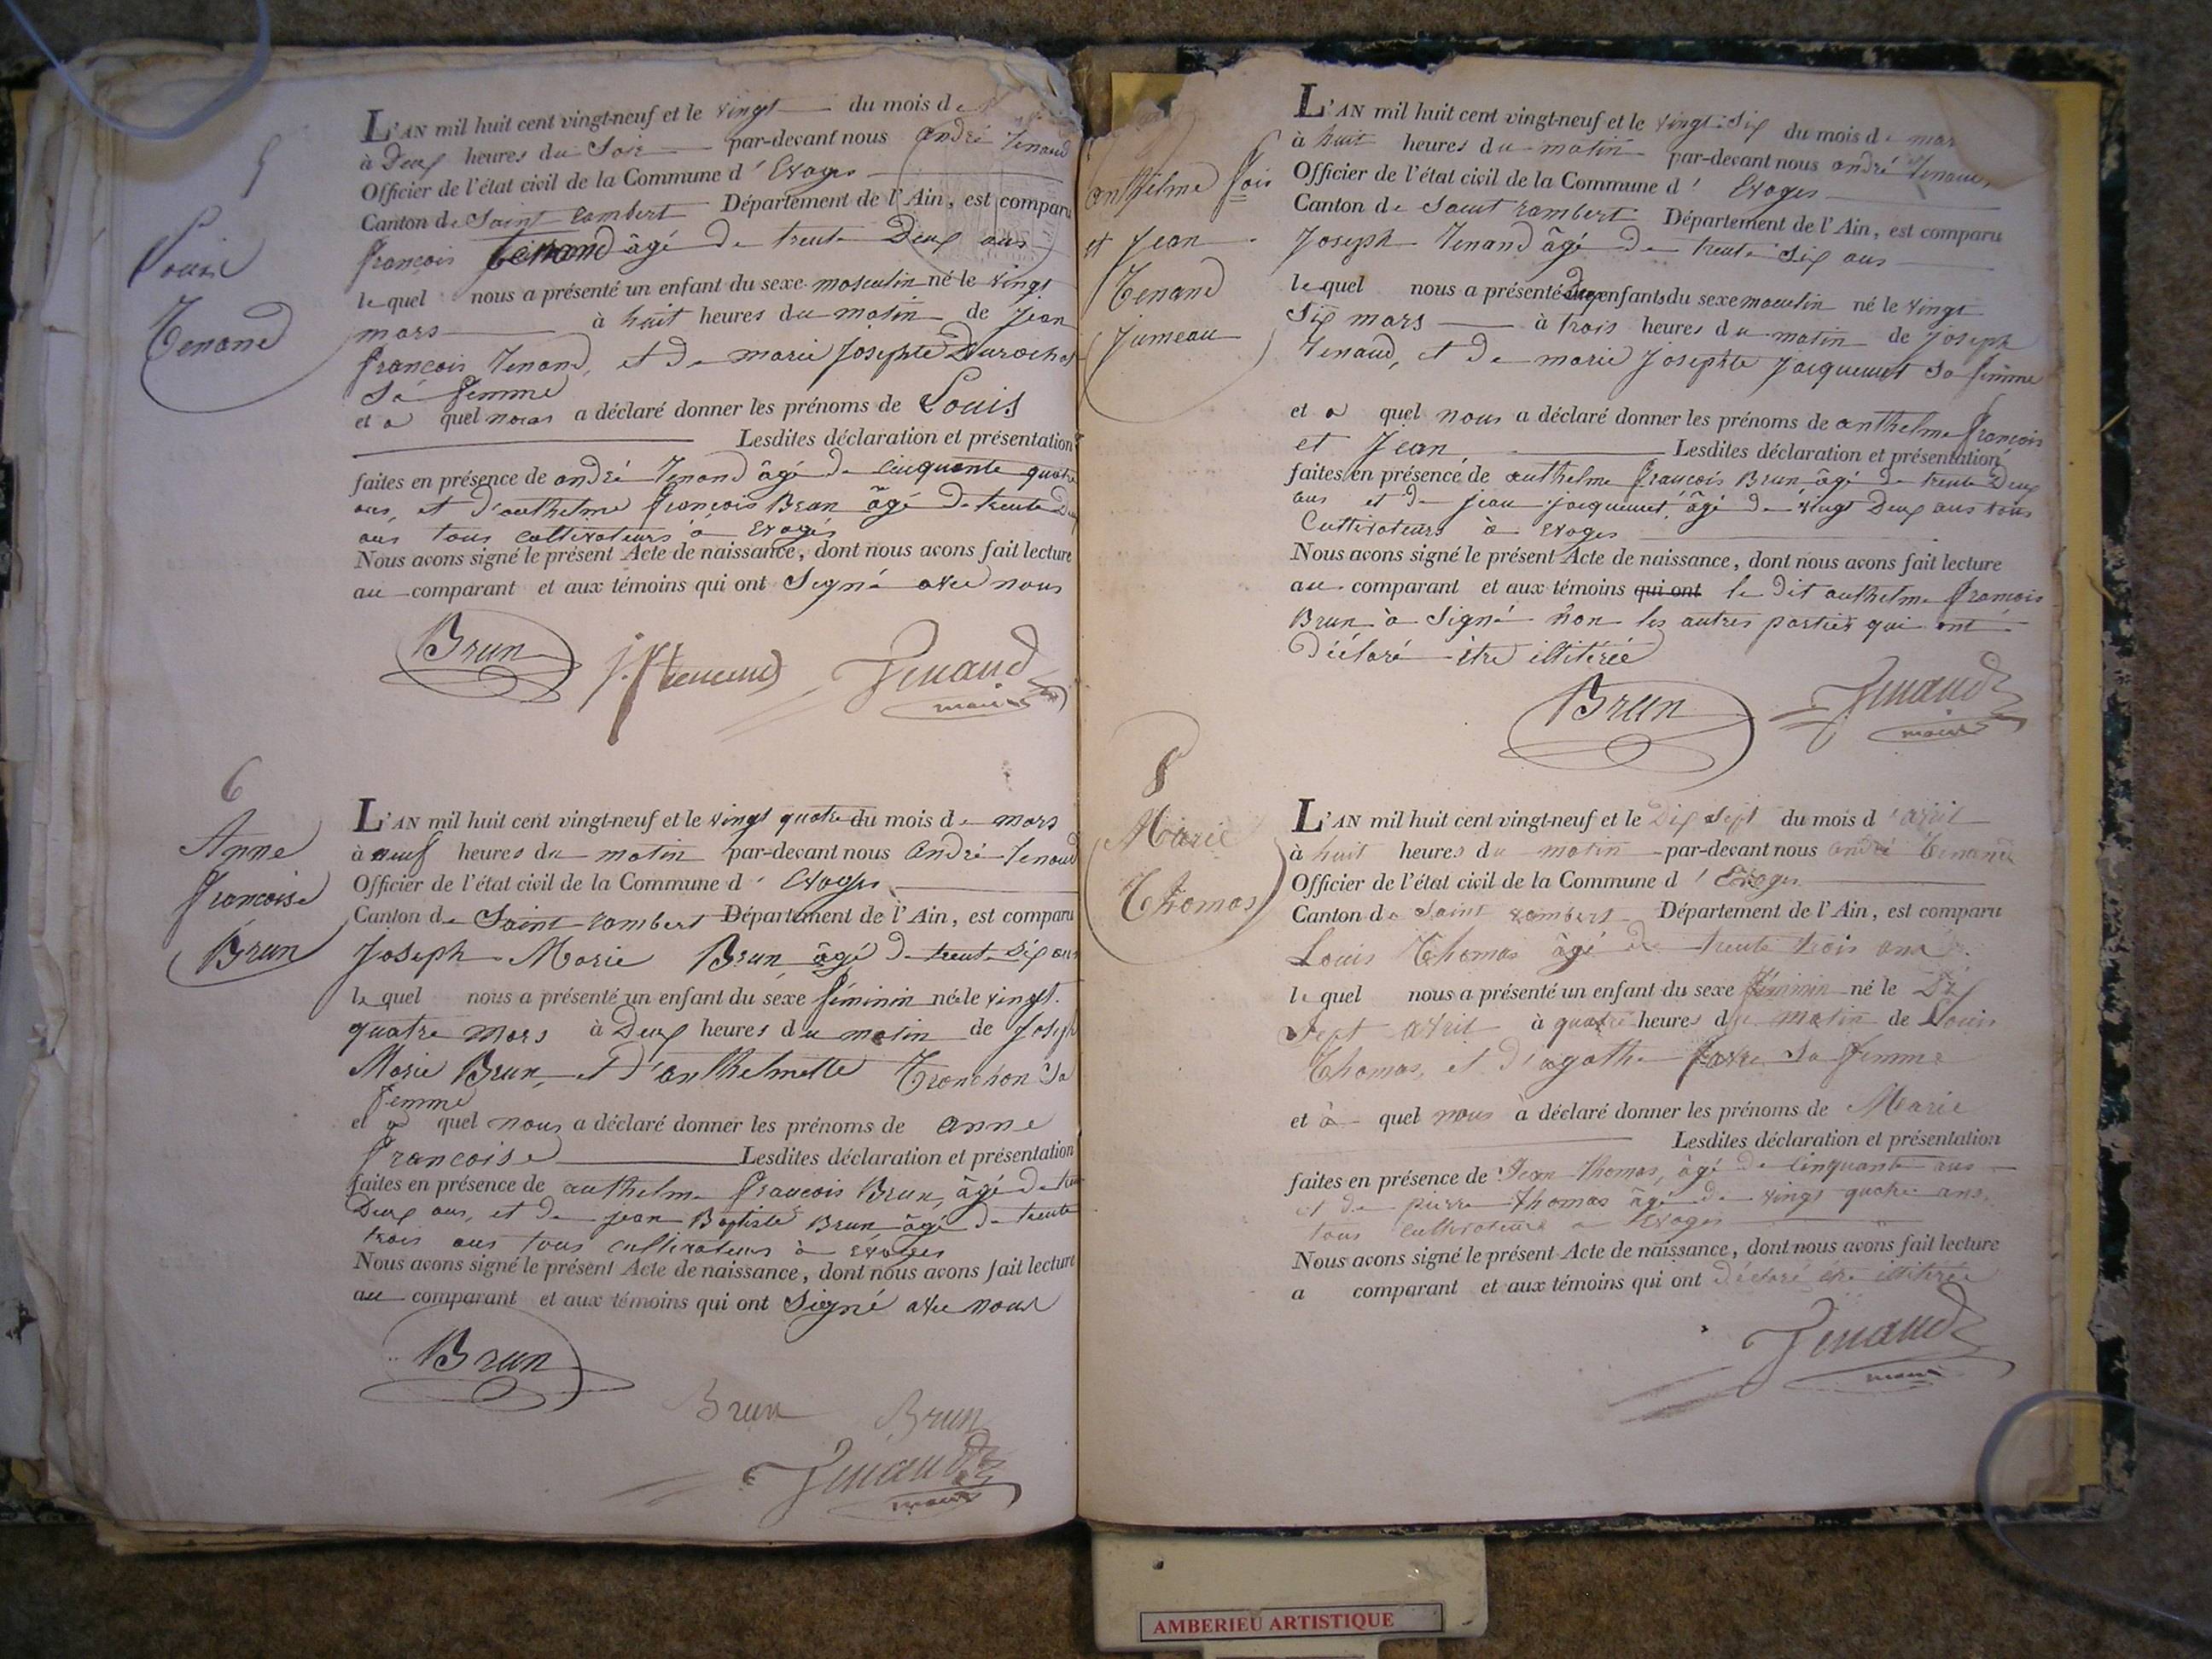 5
Louis
Tenand
L'AN mil huit cent vingt-neuf et le vingt du mois de
à Deux heures du Soir par-devant nous andré Tenand
Officier de l'état civil de la Commune d' Evoges
Canton de Saint rambert Département de l'Ain, est comparu
françois Tenand âgé de trente Deux ans
lequel nous a présenté un enfant du sexe masculin né le vingt
mars à huit heures du matin de Jean
françois Tenand, et de marie Josephte
Sa femme
et a quel nous a déclaré donner les prénoms de Louis
Lesdites déclaration et présentation
faites en présence de andré Tenand âgé de cinquante quatre
ans, et d'anthelme françois Brun âgé de trente Deux
ans tous cultivateurs à Evoges
Nous avons signé le présent Acte de naissance, dont nous avons fait lecture
au comparant et aux témoins qui ont Signé avec nous
Brun
Tenand
maire
6
Anne
francoise
Brun
L'AN mil huit cent vingt-neuf et le vingt quatre du mois de mars
à neuf heures du matin par-devant nous André Tenand
Officier de l'état civil de la Commune d' Evoges
Canton de Saint rambert Département de l'Ain, est comparu
Joseph Marie Brun âgé de trente Six ans
lequel nous a présenté un enfant du sexe féminin née le vingt
quatre mars à Deux heures du matin de Joseph
Marie Brun, et d'anthelmette Tronchon Sa
femme
et a quel nous a déclaré donner les prénoms de anne
francoise Lesdites déclaration et présentation
faites en présence de anthelme françois Brun, âgé de trente
Deux ans, et de jean Baptiste Brun âgé de trente
trois ans tous cultivateurs à Evoges
Nous avons signé le présent Acte de naissance, dont nous avons fait lecture
au comparant et aux témoins qui ont Signé avec nous
Brun
Brun Brun
Tenand
maire
anthelme fois
et Jean
Tenand
Jumeau
L'AN mil huit cent vingt-neuf et le vingt-Six du mois de mars
à huit heures du matin par-devant nous andré Tenand
Officier de l'état civil de la Commune d' Evoges
Canton de Saint rambert Département de l'Ain, est comparu
Joseph Tenand âgé de trente Six ans
lequel nous a présenté deux enfants du sexe masculin né le vingt
Six mars à trois heures du matin de Joseph
Tenand, et de marie Josephte Jacquemet Sa femme
et a quel nous a déclaré donner les prénoms de anthelme françois
et Jean Lesdites déclaration et présentation
faites en présence de anthelme françois Brun âgé de trente Deux
ans et de jean jacquemet âgé de vingt Deux ans tous
Cultivateurs à Evoges
Nous avons signé le présent Acte de naissance, dont nous avons fait lecture
au comparant et aux témoins qui ont le dit anthelme françois
Brun à Signé non les autres parties qui ont
Déclaré être illitérée
Brun
Tenand
maire
8
Marie
Thomas
L'AN mil huit cent vingt-neuf et le Dix Sept du mois d'avril
à huit heures du matin par-devant nous andré Tenand
Officier de l'état civil de la Commune d' Evoges
Canton de Saint rambert Département de l'Ain, est comparu
Louis Thomas âgé de trente trois ans
lequel nous a présenté un enfant du sexe féminin né le Dix
Sept avril à quatre heures du matin de Louis
Thomas, et d'agathe favre Sa femme
et à quel nous à déclaré donner les prénoms de Marie
Lesdites déclaration et présentation
faites en présence de Jean Thomas, âgé de Cinquante ans
et de pierre Thomas âgé de vingt quatre ans,
tous cultivateurs a Evoges
Nous avons signé le présent Acte de naissance, dont nous avons fait lecture
a comparant et aux témoins qui ont déclaré être illitérée
Tenand
maire
AMBERIEU ARTISTIQUE